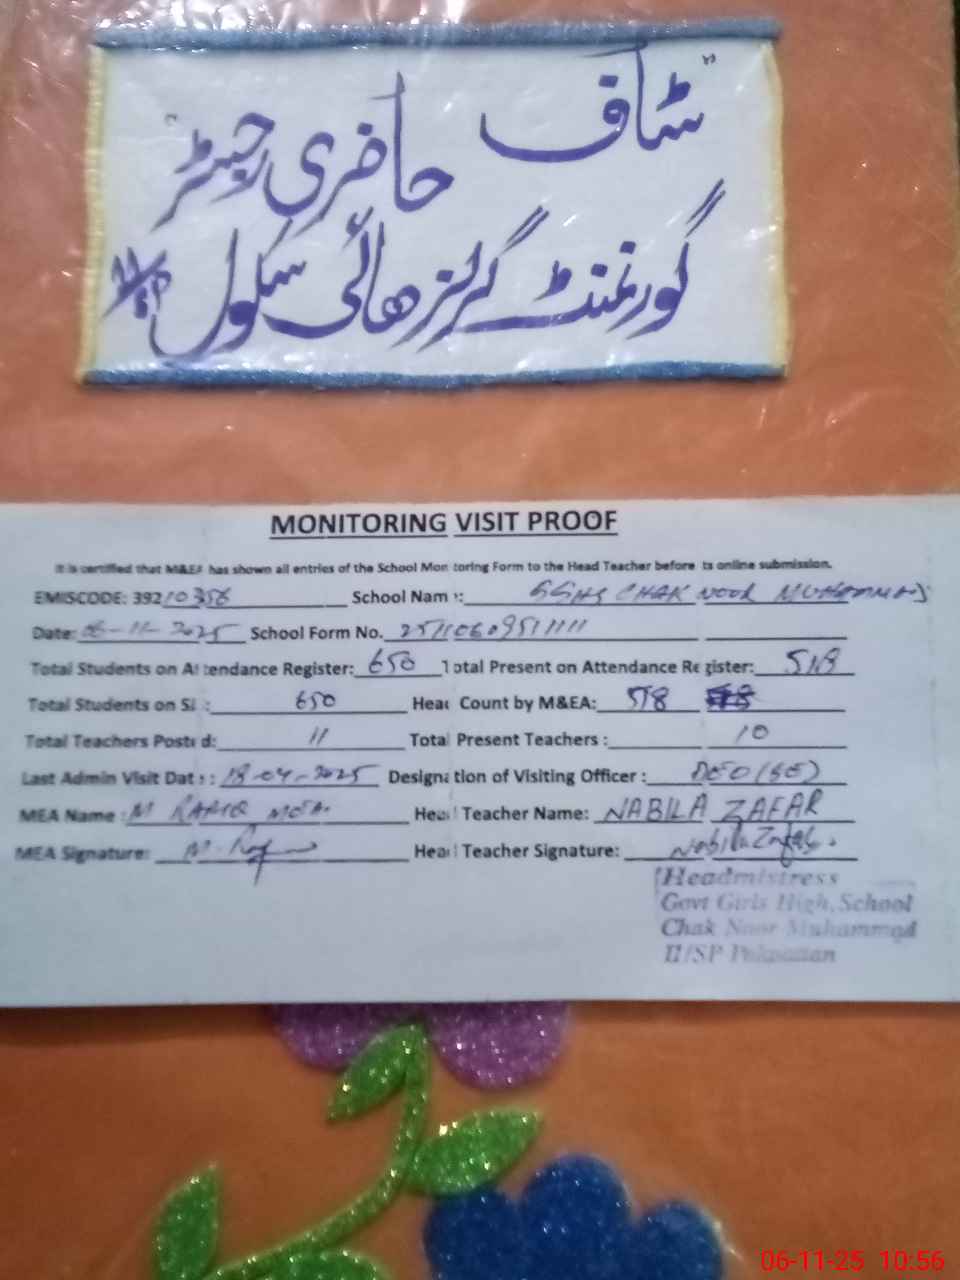 سٹاف حاضری رجسٹر
گورنمنٹ گرلز ھائی سکول 11/SP
MONITORING VISIT PROOF
It is certified that M&EA has shown all entries of the School Monitoring Form to the Head Teacher before its online submission.
EMISCODE: 39210356 School Name: GGHS CHAK NOOR MUHAMMAD
Date: 06-11-2025 School Form No. 25110609511111
Total Students on Attendance Register: 650 Total Present on Attendance Register: 518
Total Students on SI : 650 Head Count by M&EA: 518
Total Teachers Posted: 11 Total Present Teachers : 10
Last Admin Visit Date : 18-04-2025 Designation of Visiting Officer : DEO (SE)
MEA Name : M RAFIQ MEA. Head Teacher Name: NABILA ZAFAR
MEA Signature: M. Raf Head Teacher Signature: Nabila Zafar.
Headmistress
Govt Girls High, School
Chak Noor Muhammad
11/SP Pakpattan
06-11-25 10:56